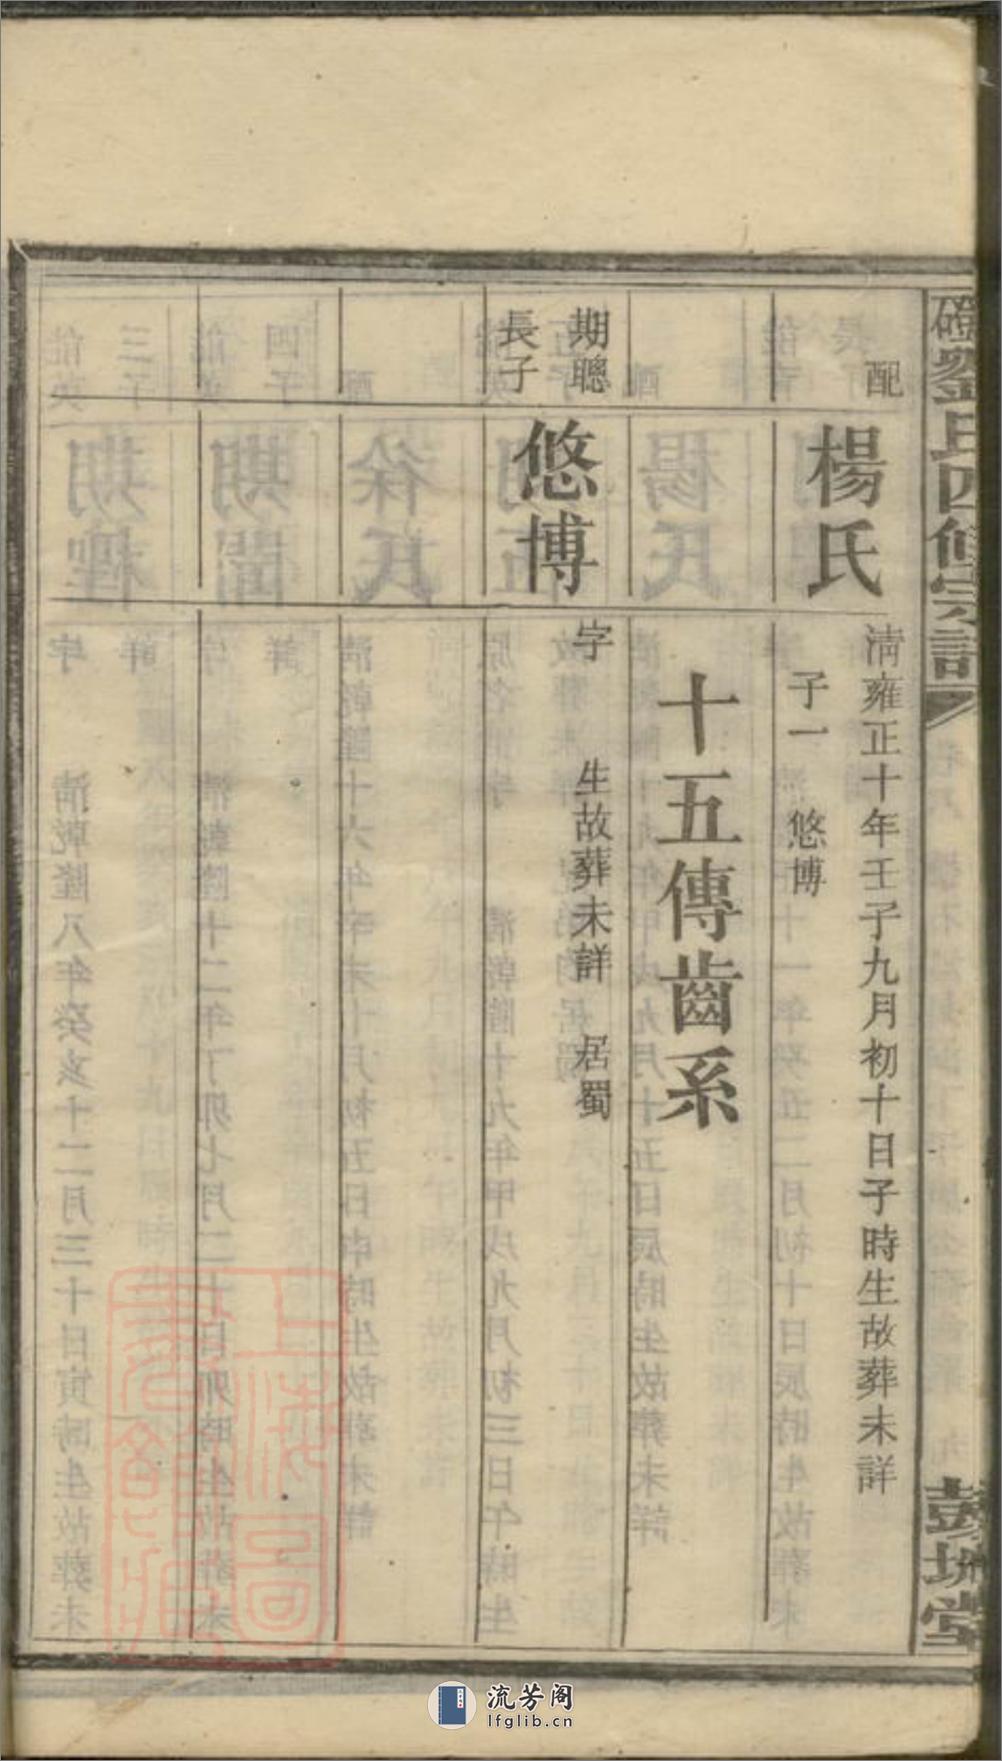 劉氏四修宗譜
彭城堂
配
楊氏
清雍正十年壬子九月初十日子時生故葬未詳
子一 悠博
十五傳齒系
期聰
長子
悠博
字 生故葬未詳 居蜀
流芳阁
lfglib.cn